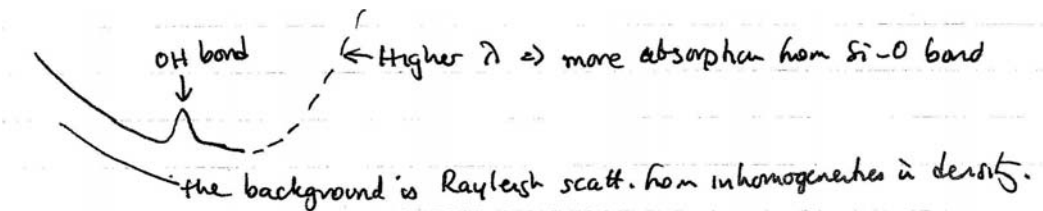 OH bond
← Higher λ ⇒ more absorption from Si-O bond
the background is Rayleigh scatt. from inhomogeneities in density.